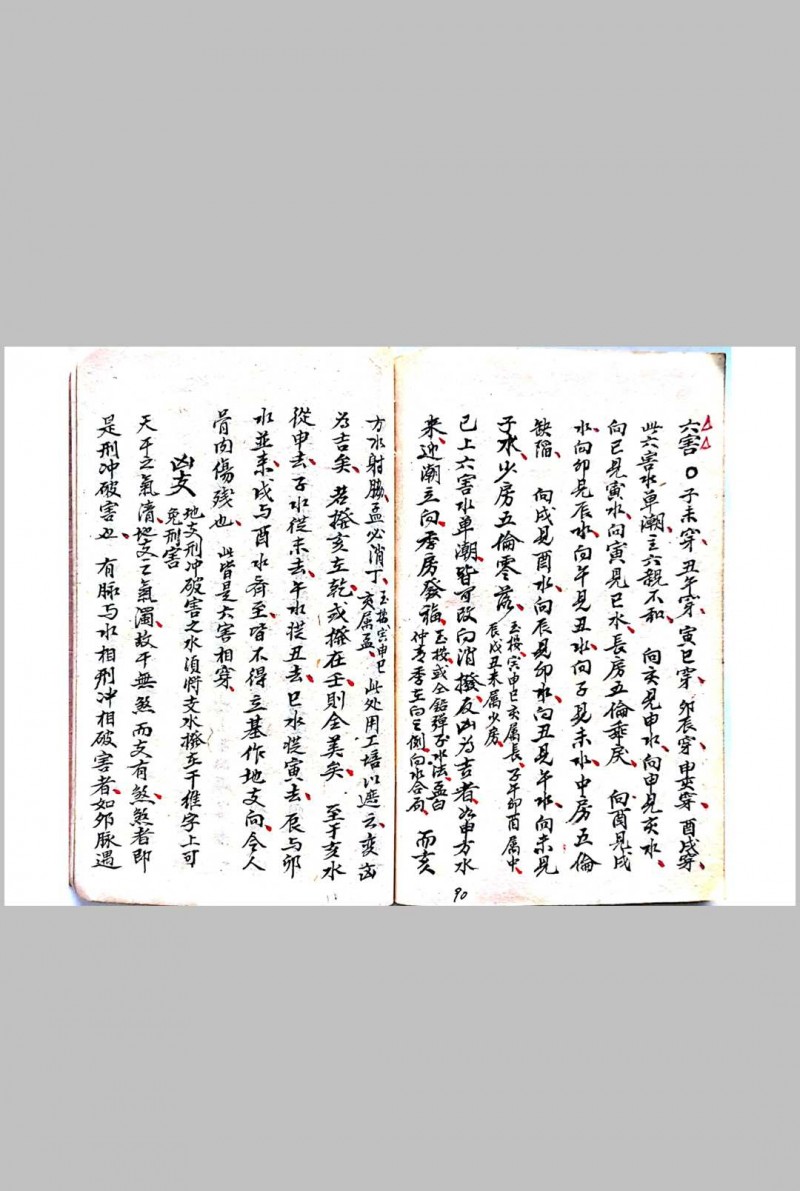 六害〇子未穿丑午穿寅巳穿卯辰穿申亥穿酉戌穿
此六害水单潮主六親不和 向亥見申水向申見亥水
向巳見寅水向寅見巳水長房五倫乖戾 向酉見戌
水向卯見辰水向午見丑水向子見未水中房五倫
缺陷 向戌見酉水向辰見卯水向丑見午水向未見
子水少房五倫零落
玉按寅申巳亥属長子午卯酉属中
辰戌丑未属少房
已上六害水单潮皆可改向消撥反凶為吉者如申方水
来迎潮立向季房發福
玉按或合
弹子水法孟
仲
季左向
側向水合局
而亥
方水射脇孟必消丁
玉按寅申巳
亥属孟
此处用工培以遮云変凶
為吉矣若撥亥左乾或撥在壬則全美矣 至于亥水
從申去子水從未去午水從丑去巳水從寅去辰与卯
水並来戌与酉水齊至皆不得立基作地支向令人
骨肉傷残也 此皆是六害相穿
凶支
地支刑冲破害之水須將支水撥在干維字上可
免刑害
天干之氣清地支之氣濁故干無煞而支有煞煞者即
是刑冲破害也 有脉与水相刑冲相破害者如卯脉遇
90